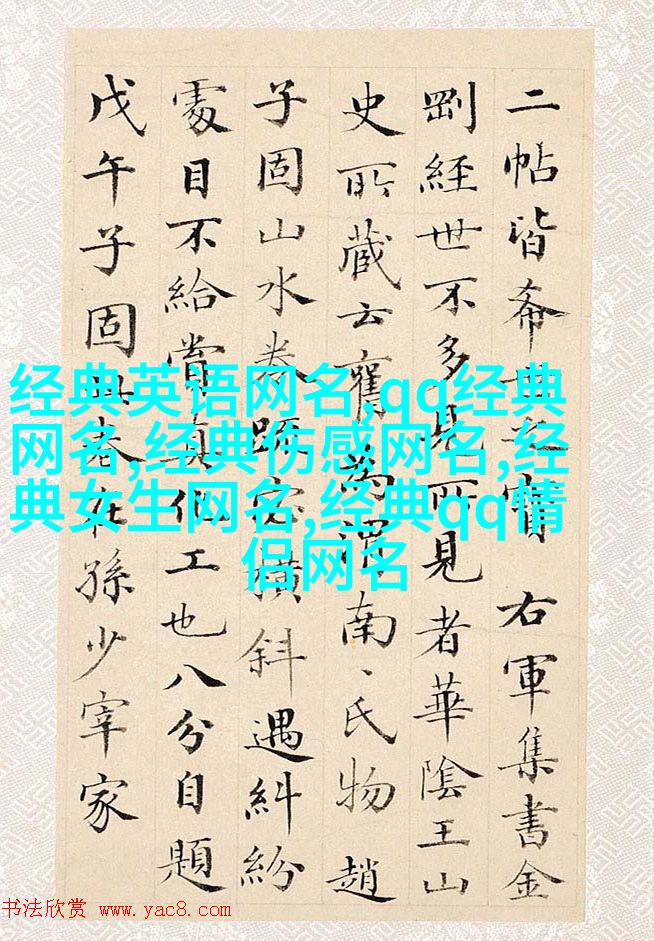 二帖皆希世之寶 右軍集書金
剛經世不多見所見者華陰王山
史所藏云舊為渭南、氏物 趙
子固山水卷 疎密橫斜遇糾紛
處目不給賞真化工也八分自題
戊午子固與卷在孫少宰家
经典英语网名,qq经典
网名,经典伤感网名,经
典女生网名,经典qq情
侣网名
书法欣赏 www.yac8.com